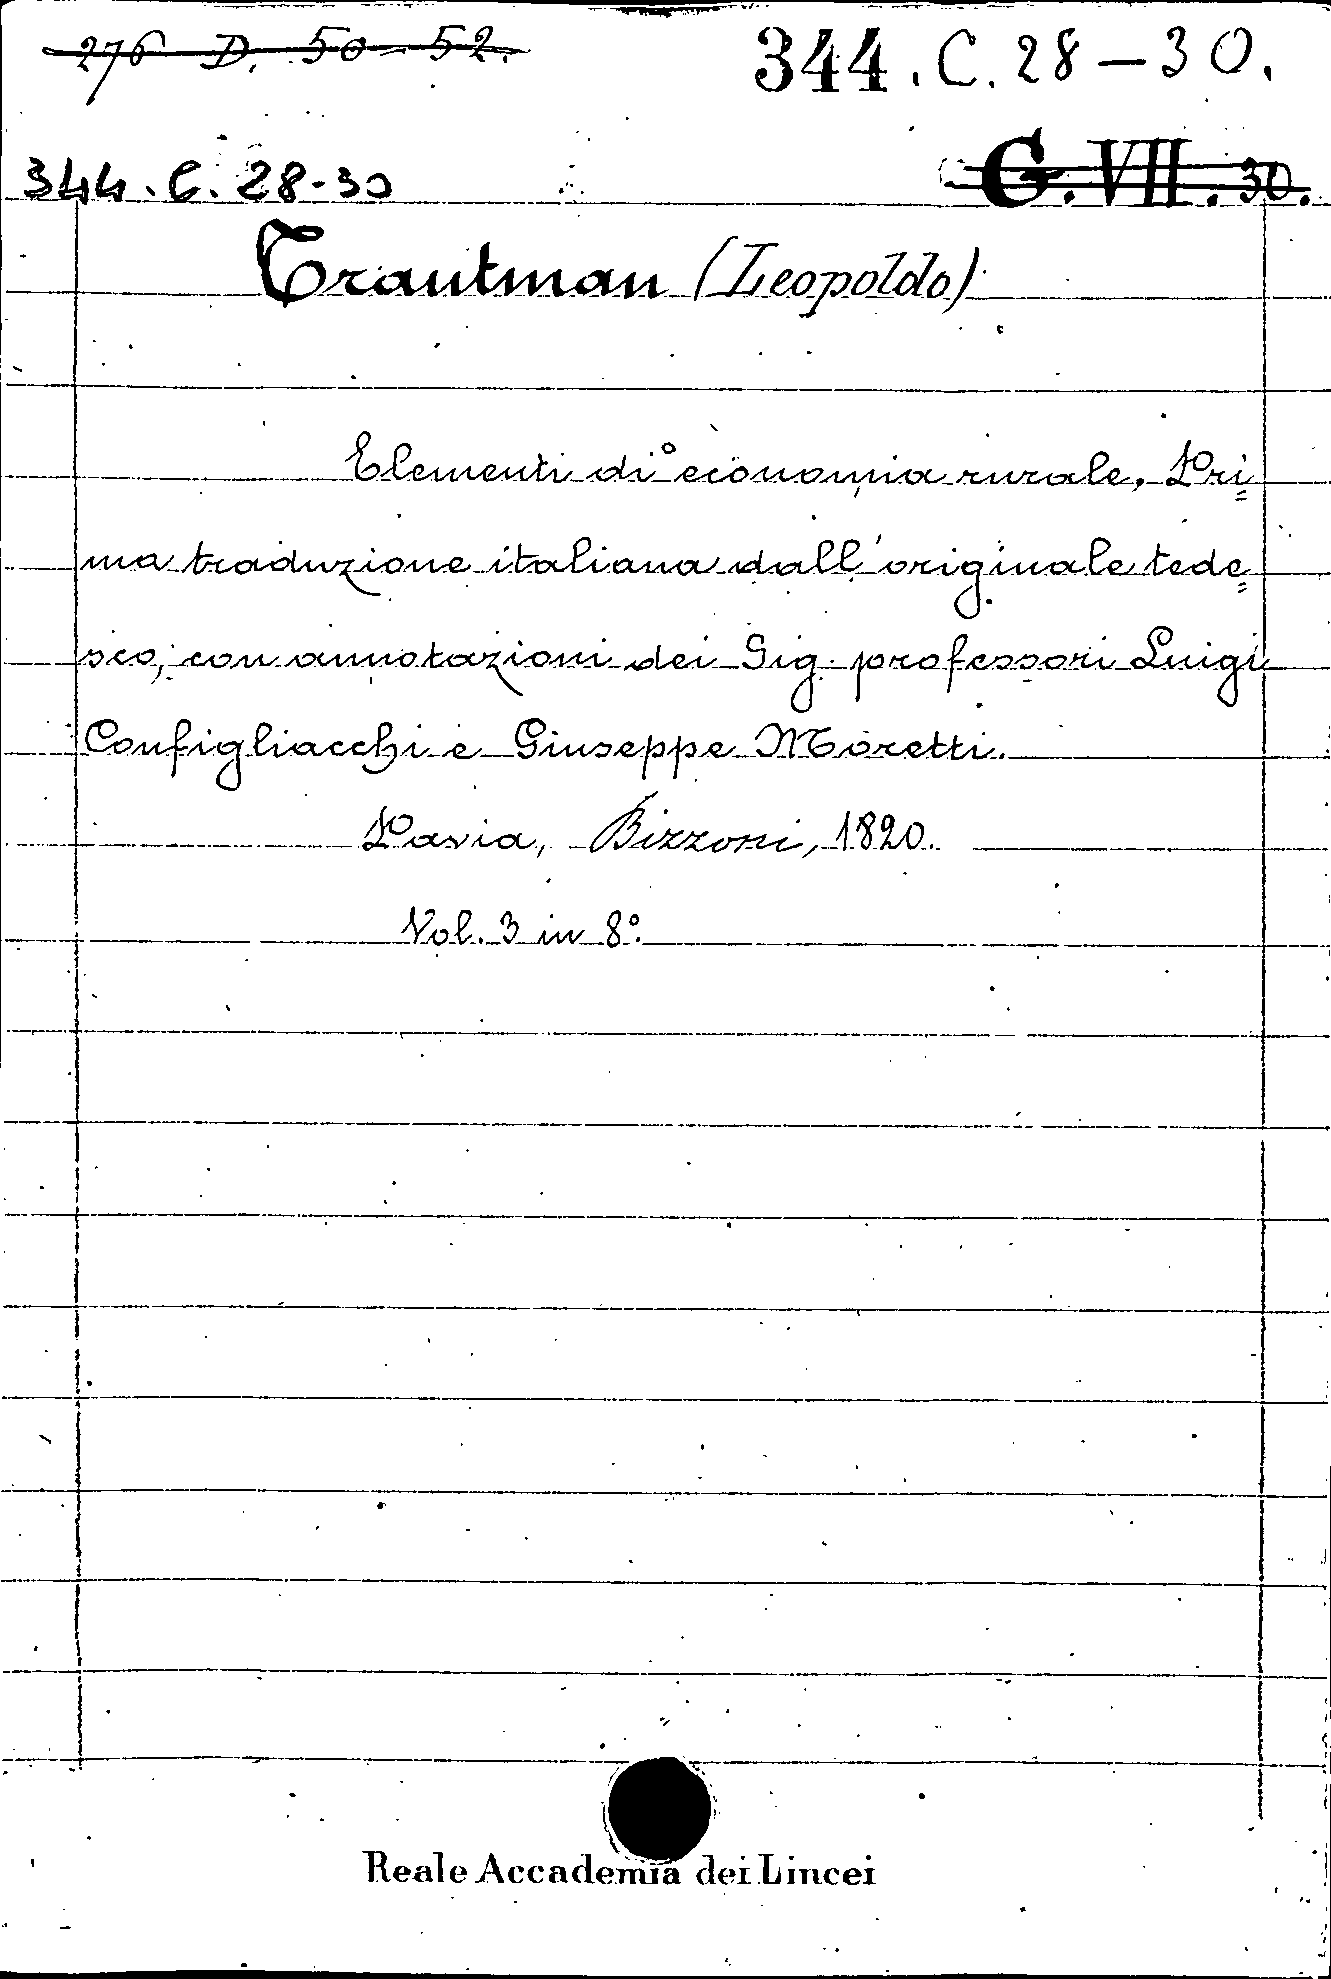 276 D. 50-52.
344. C. 28-30.
344. C. 28-30
G. VII. 30.
Trautman (Leopoldo)
Elementi di economia rurale. Pri=
ma traduzione italiana dall'originale tede=
sco, con annotazioni dei Sig. professori Luigi
Configliacchi e Giuseppe Moretti.
Pavia, Bizzoni, 1820.
Vol. 3 in 8°.
Reale Accademia dei Lincei